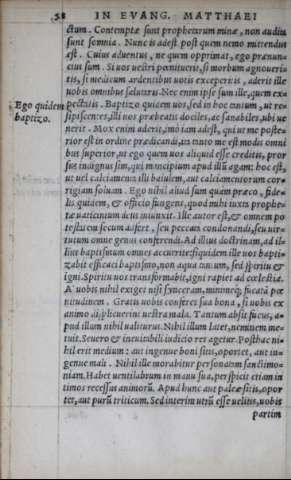 58 IN EVANG. MATTHAEI
ctum. Contemptæ sunt prophetarum minæ, non auditæ
sunt somnia. Nunc is adest post quem nemo mittendus
est. Cuius aduentus, ne quem opprimat, ego prænun-
cius sum. Si uos uestri pœnituerit, si morbum agnoueri-
tis, si medicum ardentibus uotis exceperitis, aderit ille
uobis omnibus salutaris. Nec enim ipse sum ille, quem ex-
Ego quidem
baptizo.
pectatis. Baptizo quidem uos, sed in hoc unum, ut re-
sipiscentes, illi nos præbeatis dociles, ac sanabiles, ubi ue-
nerit. Mox enim aderit, imò iam adest, qui ut me poste-
rior est in ordine prædicandi, ita tanto me est modis omni
bus superior, ut ego quem uos aliquid esse creditis, pror
sus indignus sim, qui mancipium apud illũ agam: hoc est,
ut uel calciamenta illi baiulem, aut calciamentorum cor-
rigiam soluam. Ego nihil aliud sum quàm præco, fide-
lis quidem, & officio fungens, quod mihi iuxta prophe-
tæ uaticinium deus iniunxit. Ille autor est, & omnem po
testatem secum adfert, seu peccata condonandi, seu uir-
tutum omne genus conferendi. Ad illius doctrinam, ad il-
lius baptismum omnes accurrite: siquidem ille uos bapti-
zabit efficaci baptismo, non aqua tantum, sed spiritu &
igni. Spiritu uos transformabit, igni rapiet ad cœlestia.
A' uobis nihil exiget nisi synceram, minimeq́; fucatã pœ
nitudinem. Gratis uobis conferet sua bona, si uobis ex
animo displicuerint uestra mala. Tantum absit fucus, a-
pud illum nihil ualiturus. Nihil illum latet, neminem me-
tuit. Seuero & ineuitabili iudicio res agetur. Posthac ni-
hil erit medium: aut ingenue boni sitis, oportet, aut in-
genue mali. Nihil ille morabitur personatam sanctimo-
niam. Habet uentilabrum in manu sua, perspicit etiam in
timos recessus animorũ. Apud hunc aut paleæ sitis, opor
tet, aut purũ triticum. Sed interim utrũ esse uelitis, uobis
partim